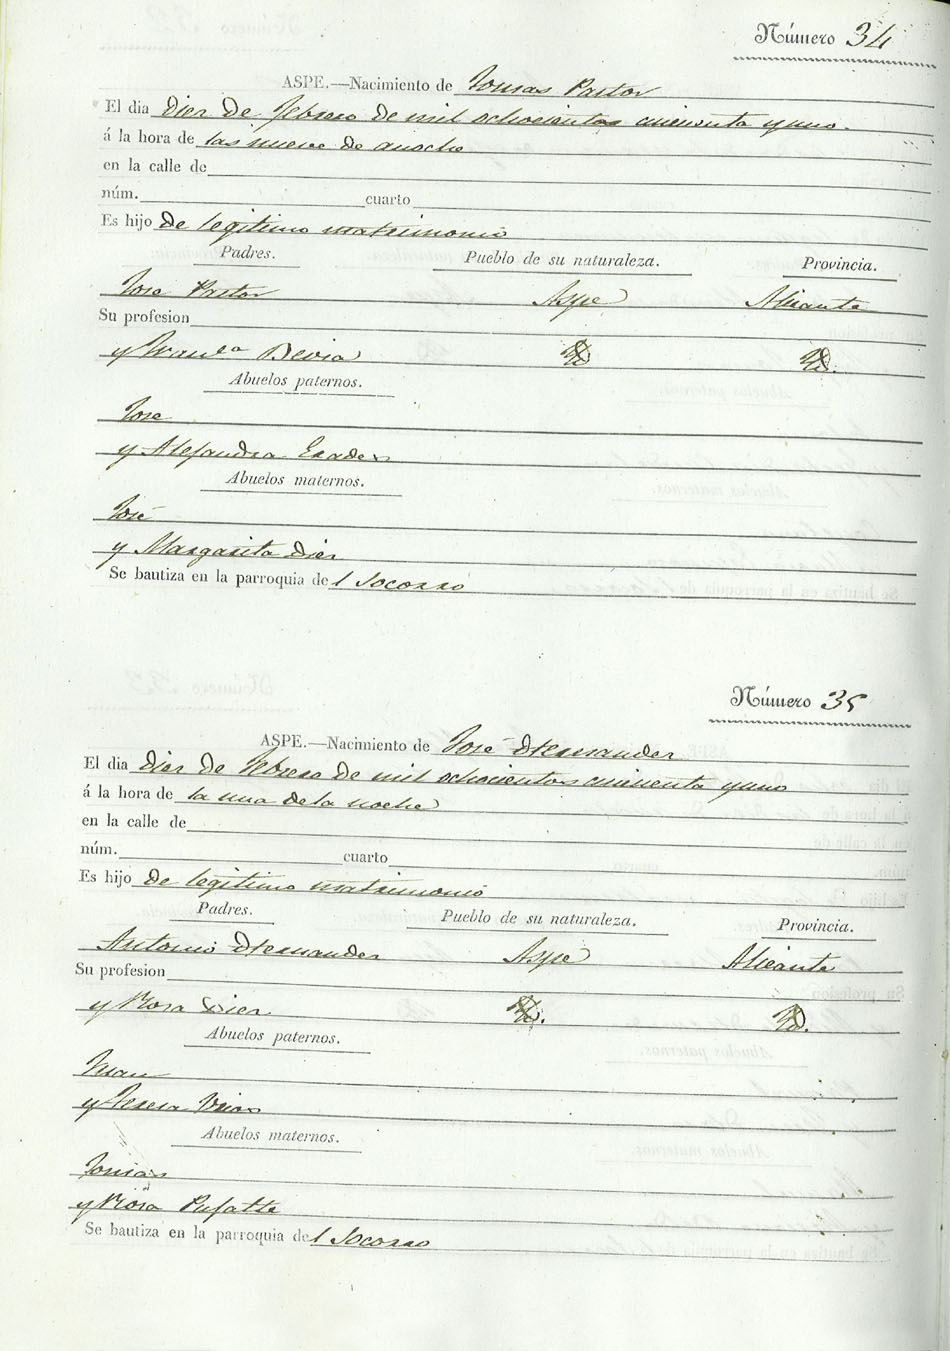 Número 34
ASPE.—Nacimiento de Tomas Pastor
El dia diez de Febrero de mil ochocientos cincuenta y uno.
á la hora de las nueve de anoche
en la calle de
núm. cuarto
Es hijo de legitimo matrimonio
Padres. Pueblo de su naturaleza. Provincia.
Jose Pastor Aspe Alicante
Su profesion
y Franca Id. Id.
Abuelos paternos.
Jose
y Alejandra
Abuelos maternos.
José
y Margarita Diez
Se bautiza en la parroquia del Socorro
Número 35
ASPE.—Nacimiento de José Hernandez
El dia diez de Febrero de mil ochocientos cincuenta y uno
á la hora de la una de la noche
en la calle de
núm. cuarto
Es hijo de legitimo matrimonio
Padres. Pueblo de su naturaleza. Provincia.
Antonio Hernandez Aspe Alicante
Su profesion
y Rosa Diez Id. Id.
Abuelos paternos.
Juan
y Teresa
Abuelos maternos.
Tomas
y Rosa Pujalte
Se bautiza en la parroquia del Socorro